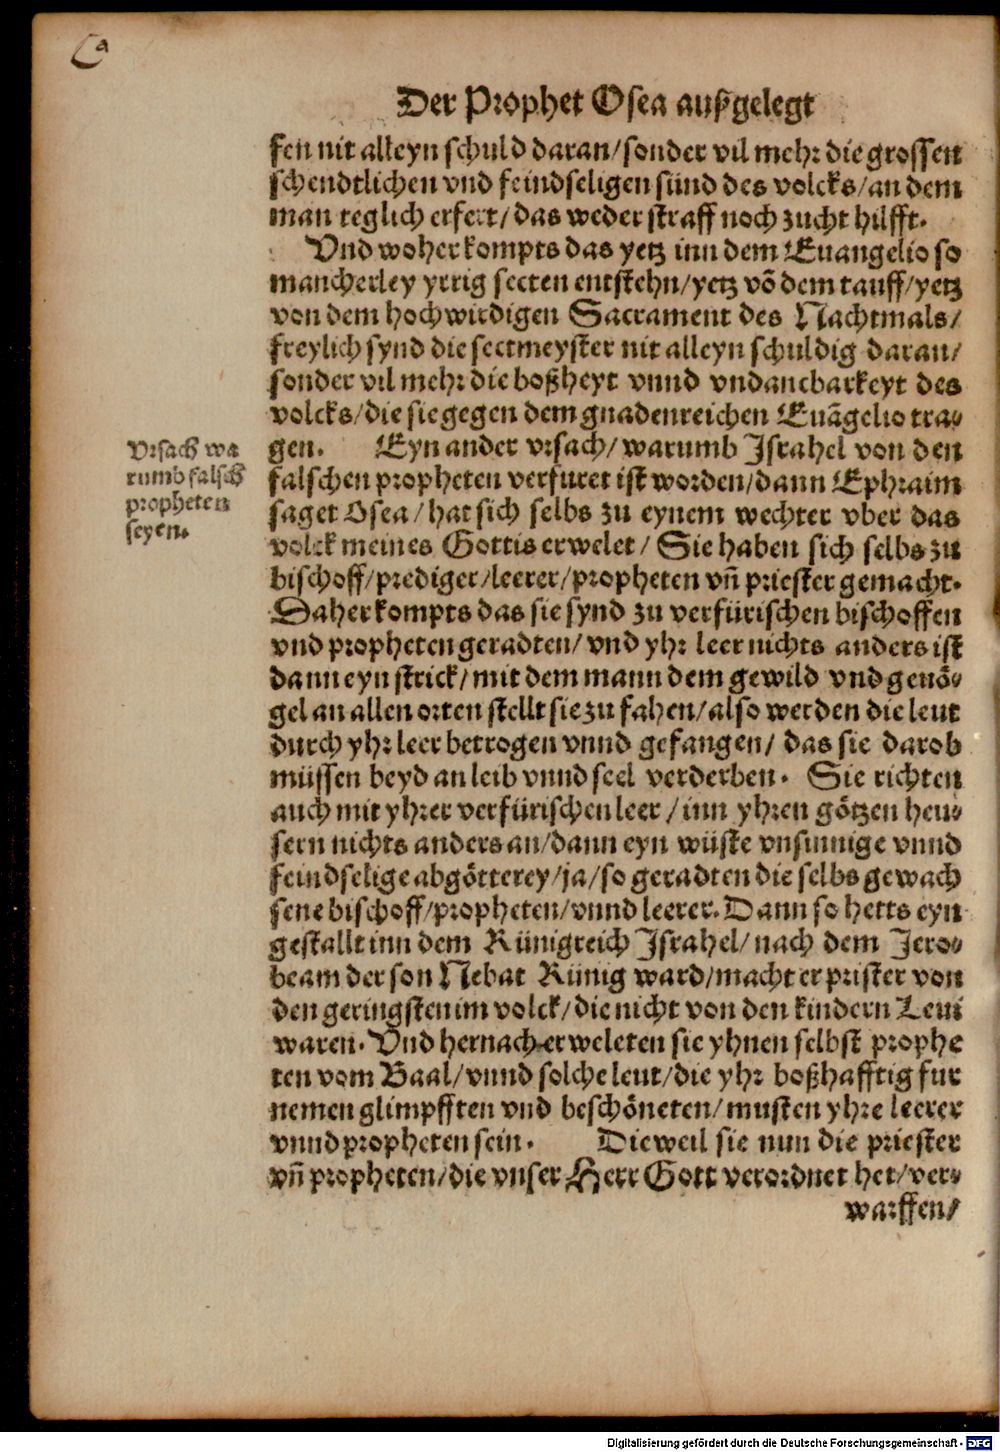 Der Prophet Osea außgelegt
fen nit alleyn schuld daran/sonder vil mehr die grossen
schendtlichen vnd feindseligen sünd des volcks/an dem
man teglich erfert/das weder straff noch zucht hilfft.
Vnd woher kompts das yetz inn dem Euangelio so
mancherley yrrig secten entstehn/yetz võ dem tauff/yetz
von dem hochwirdigen Sacrament des Nachtmals/
freylich synd die sectmeyster nit alleyn schuldig daran/
sonder vil mehr die boßheyt vnnd vndanckbarkeyt des
volcks/die sie gegen dem gnadenreichen Euãgelio tra-
gen. Eyn ander vrsach/warumb Israhel von den
falschen propheten verfuret ist worden/dann Ephraim
saget Osea/hat sich selbs zu eynem wechter vber das
volck meines Gottis erwelet/Sie haben sich selbs zu
bischoff/prediger/leerer/propheten vñ priester gemacht.
Daher kompts das sie synd zu verfürischen bischoffen
vnd propheten geradten/vnd yhr leer nichts anders ist
dann eyn strick/mit dem mann dem gewild vnd genö-
gel an allen orten stellt sie zu fahen/also werden die leut
durch yhr leer betrogen vnnd gefangen/das sie darob
müssen beyd an leib vnnd seel verderben. Sie richten
auch mit yhrer verfürischen leer/inn yhren götzen heu-
sern nichts anders an/dann eyn wüste vnsinnige vnnd
feindselige abgötterey/ja/so geradten die selbs gewach
sene bischoff/propheten/vnnd leerer. Dann so hetts eyn
gestallt inn dem Künigreich Israhel/nach dem Jero-
beam der son Nebat Künig ward/macht er prister von
den geringsten im volck/die nicht von den kindern Leui
waren. Vnd hernach erweleten sie yhnen selbst prophe
ten vom Baal/vnnd solche leut/die yhr boßhafftig fur
nemen glimpfften vnd beschöneten/musten yhre leerer
vnnd propheten sein. Die weil sie nun die priester
vñ propheten/die vnser Herr Gott verordnet het/ver-
warffen/
Vrsach wa
rumb falsch
propheten
seyen.
Digitalisierung gefördert durch die Deutsche Forschungsgemeinschaft - DFG